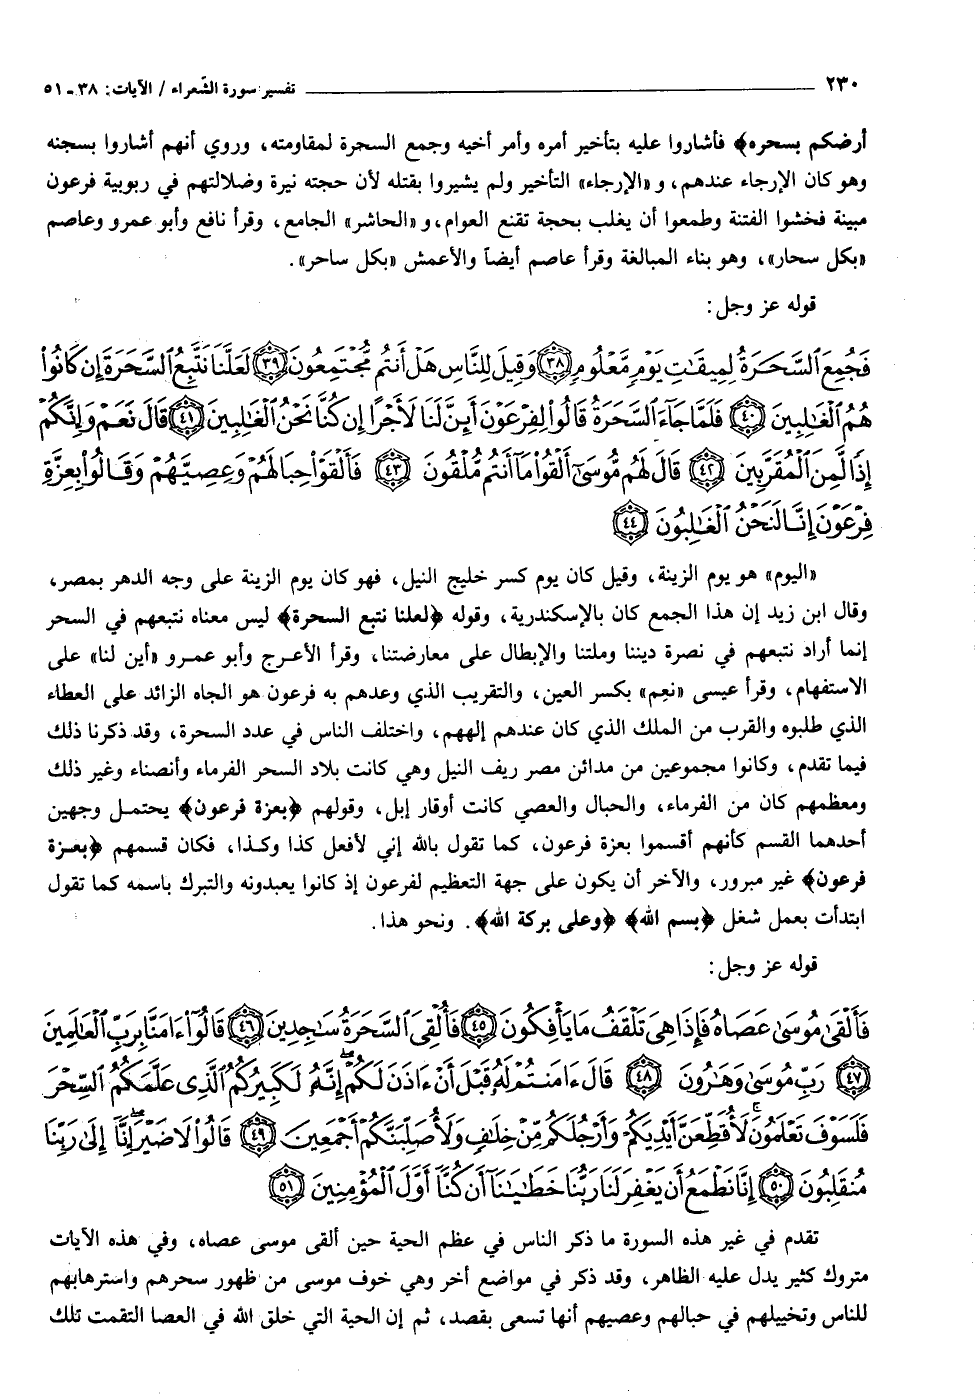 ٢٣٠ تفسير سورة الشّعراء / الآيات: ٣٨ - ٥١
أرضكم بسحره﴾ فأشاروا عليه بتأخير أمره وأمر أخيه وجمع السحرة لمقاومته، وروي أنهم أشاروا بسجنه
وهو كان الإرجاء عندهم، و «الإرجاء» التأخير ولم يشيروا بقتله لأن حجته نيرة وضلالتهم في ربوبية فرعون
مبينة فخشوا الفتنة وطمعوا أن يغلب بحجة تقنع العوام، و «الحاشر» الجامع، وقرأ نافع وأبو عمرو وعاصم
«بكل سحار»، وهو بناء المبالغة وقرأ عاصم أيضاً والأعمش «بكل ساحر».
قوله عز وجل:
فَجُمِعَ ٱلسَّحَرَةُ لِمِيقَٰتِ يَوْمٍ مَّعْلُومٍ ﴿٣٨﴾ وَقِيلَ لِلنَّاسِ هَلْ أَنتُم مُّجْتَمِعُونَ ﴿٣٩﴾ لَعَلَّنَا نَتَّبِعُ ٱلسَّحَرَةَ إِن كَانُوا۟
هُمُ ٱلْغَٰلِبِينَ ﴿٤٠﴾ فَلَمَّا جَآءَ ٱلسَّحَرَةُ قَالُوا۟ لِفِرْعَوْنَ أَئِنَّ لَنَا لَأَجْرًا إِن كُنَّا نَحْنُ ٱلْغَٰلِبِينَ ﴿٤١﴾ قَالَ نَعَمْ وَإِنَّكُمْ
إِذًا لَّمِنَ ٱلْمُقَرَّبِينَ ﴿٤٢﴾ قَالَ لَهُم مُّوسَىٰٓ أَلْقُوا۟ مَآ أَنتُم مُّلْقُونَ ﴿٤٣﴾ فَأَلْقَوْا۟ حِبَالَهُمْ وَعِصِيَّهُمْ وَقَالُوا۟ بِعِزَّةِ
فِرْعَوْنَ إِنَّا لَنَحْنُ ٱلْغَٰلِبُونَ ﴿٤٤﴾
«اليوم» هو يوم الزينة، وقيل كان يوم كسر خليج النيل، فهو كان يوم الزينة على وجه الدهر بمصر،
وقال ابن زيد إن هذا الجمع كان بالإسكندرية، وقوله ﴿لعلنا نتبع السحرة﴾ ليس معناه نتبعهم في السحر
إنما أراد نتبعهم في نصرة ديننا وملتنا والإبطال على معارضتنا، وقرأ الأعرج وأبو عمرو «أين لنا» على
الاستفهام، وقرأ عيسى «نعِم» بكسر العين، والتقريب الذي وعدهم به فرعون هو الجاه الزائد على العطاء
الذي طلبوه والقرب من الملك الذي كان عندهم إلههم، واختلف الناس في عدد السحرة، وقد ذكرنا ذلك
فيما تقدم، وكانوا مجموعين من مدائن مصر ريف النيل وهي كانت بلاد السحر الفرماء وأنصناء وغير ذلك
ومعظمهم كان من الفرماء، والحبال والعصي كانت أوقار إبل، وقولهم ﴿بعزة فرعون﴾ يحتمل وجهين
أحدهما القسم كأنهم أقسموا بعزة فرعون، كما تقول بالله إني لأفعل كذا وكذا، فكان قسمهم ﴿بعزة
فرعون﴾ غير مبرور، والآخر أن يكون على جهة التعظيم لفرعون إذ كانوا يعبدونه والتبرك باسمه كما تقول
ابتدأت بعمل شغل ﴿بسم الله﴾ ﴿وعلى بركة الله﴾. ونحو هذا.
قوله عز وجل:
فَأَلْقَىٰ مُوسَىٰ عَصَاهُ فَإِذَا هِىَ تَلْقَفُ مَا يَأْفِكُونَ ﴿٤٥﴾ فَأُلْقِىَ ٱلسَّحَرَةُ سَٰجِدِينَ ﴿٤٦﴾ قَالُوٓا۟ ءَامَنَّا بِرَبِّ ٱلْعَٰلَمِينَ
﴿٤٧﴾ رَبِّ مُوسَىٰ وَهَٰرُونَ ﴿٤٨﴾ قَالَ ءَامَنتُمْ لَهُۥ قَبْلَ أَنْ ءَاذَنَ لَكُمْ ۖ إِنَّهُۥ لَكَبِيرُكُمُ ٱلَّذِى عَلَّمَكُمُ ٱلسِّحْرَ
فَلَسَوْفَ تَعْلَمُونَ ۚ لَأُقَطِّعَنَّ أَيْدِيَكُمْ وَأَرْجُلَكُم مِّنْ خِلَٰفٍ وَلَأُصَلِّبَنَّكُمْ أَجْمَعِينَ ﴿٤٩﴾ قَالُوا۟ لَا ضَيْرَ ۖ إِنَّآ إِلَىٰ رَبِّنَا
مُنقَلِبُونَ ﴿٥٠﴾ إِنَّا نَطْمَعُ أَن يَغْفِرَ لَنَا رَبُّنَا خَطَٰيَٰنَآ أَن كُنَّآ أَوَّلَ ٱلْمُؤْمِنِينَ ﴿٥١﴾
تقدم في غير هذه السورة ما ذكر الناس في عظم الحية حين ألقى موسى عصاه، وفي هذه الآيات
متروك كثير يدل عليه الظاهر، وقد ذكر في مواضع أخر وهي خوف موسى من ظهور سحرهم واسترهابهم
للناس وتخييلهم في حبالهم وعصيهم أنها تسعى بقصد، ثم إن الحية التي خلق الله في العصا التقمت تلك